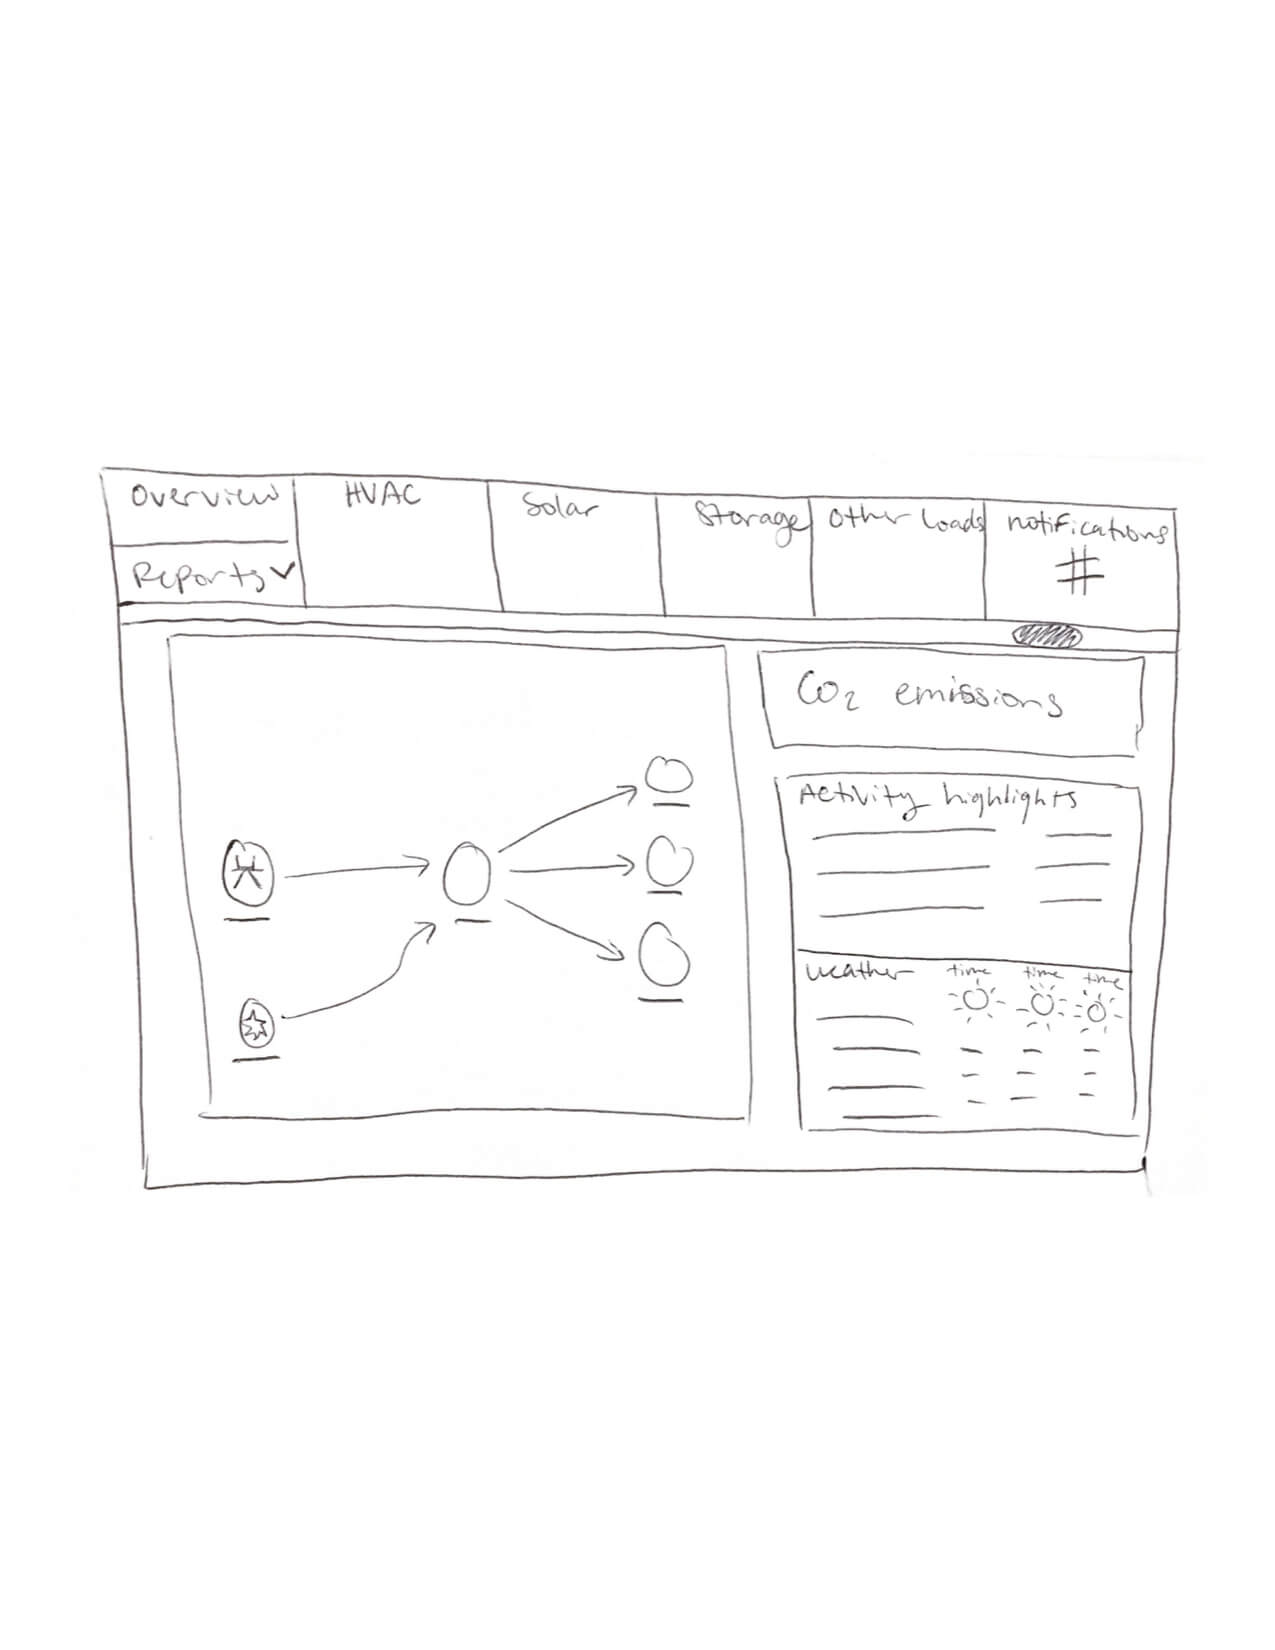 Overview
HVAC
Solar
Storage
Other Loads
notifications
#
Reports
CO₂ emissions
Activity highlights
Weather
time
time
time